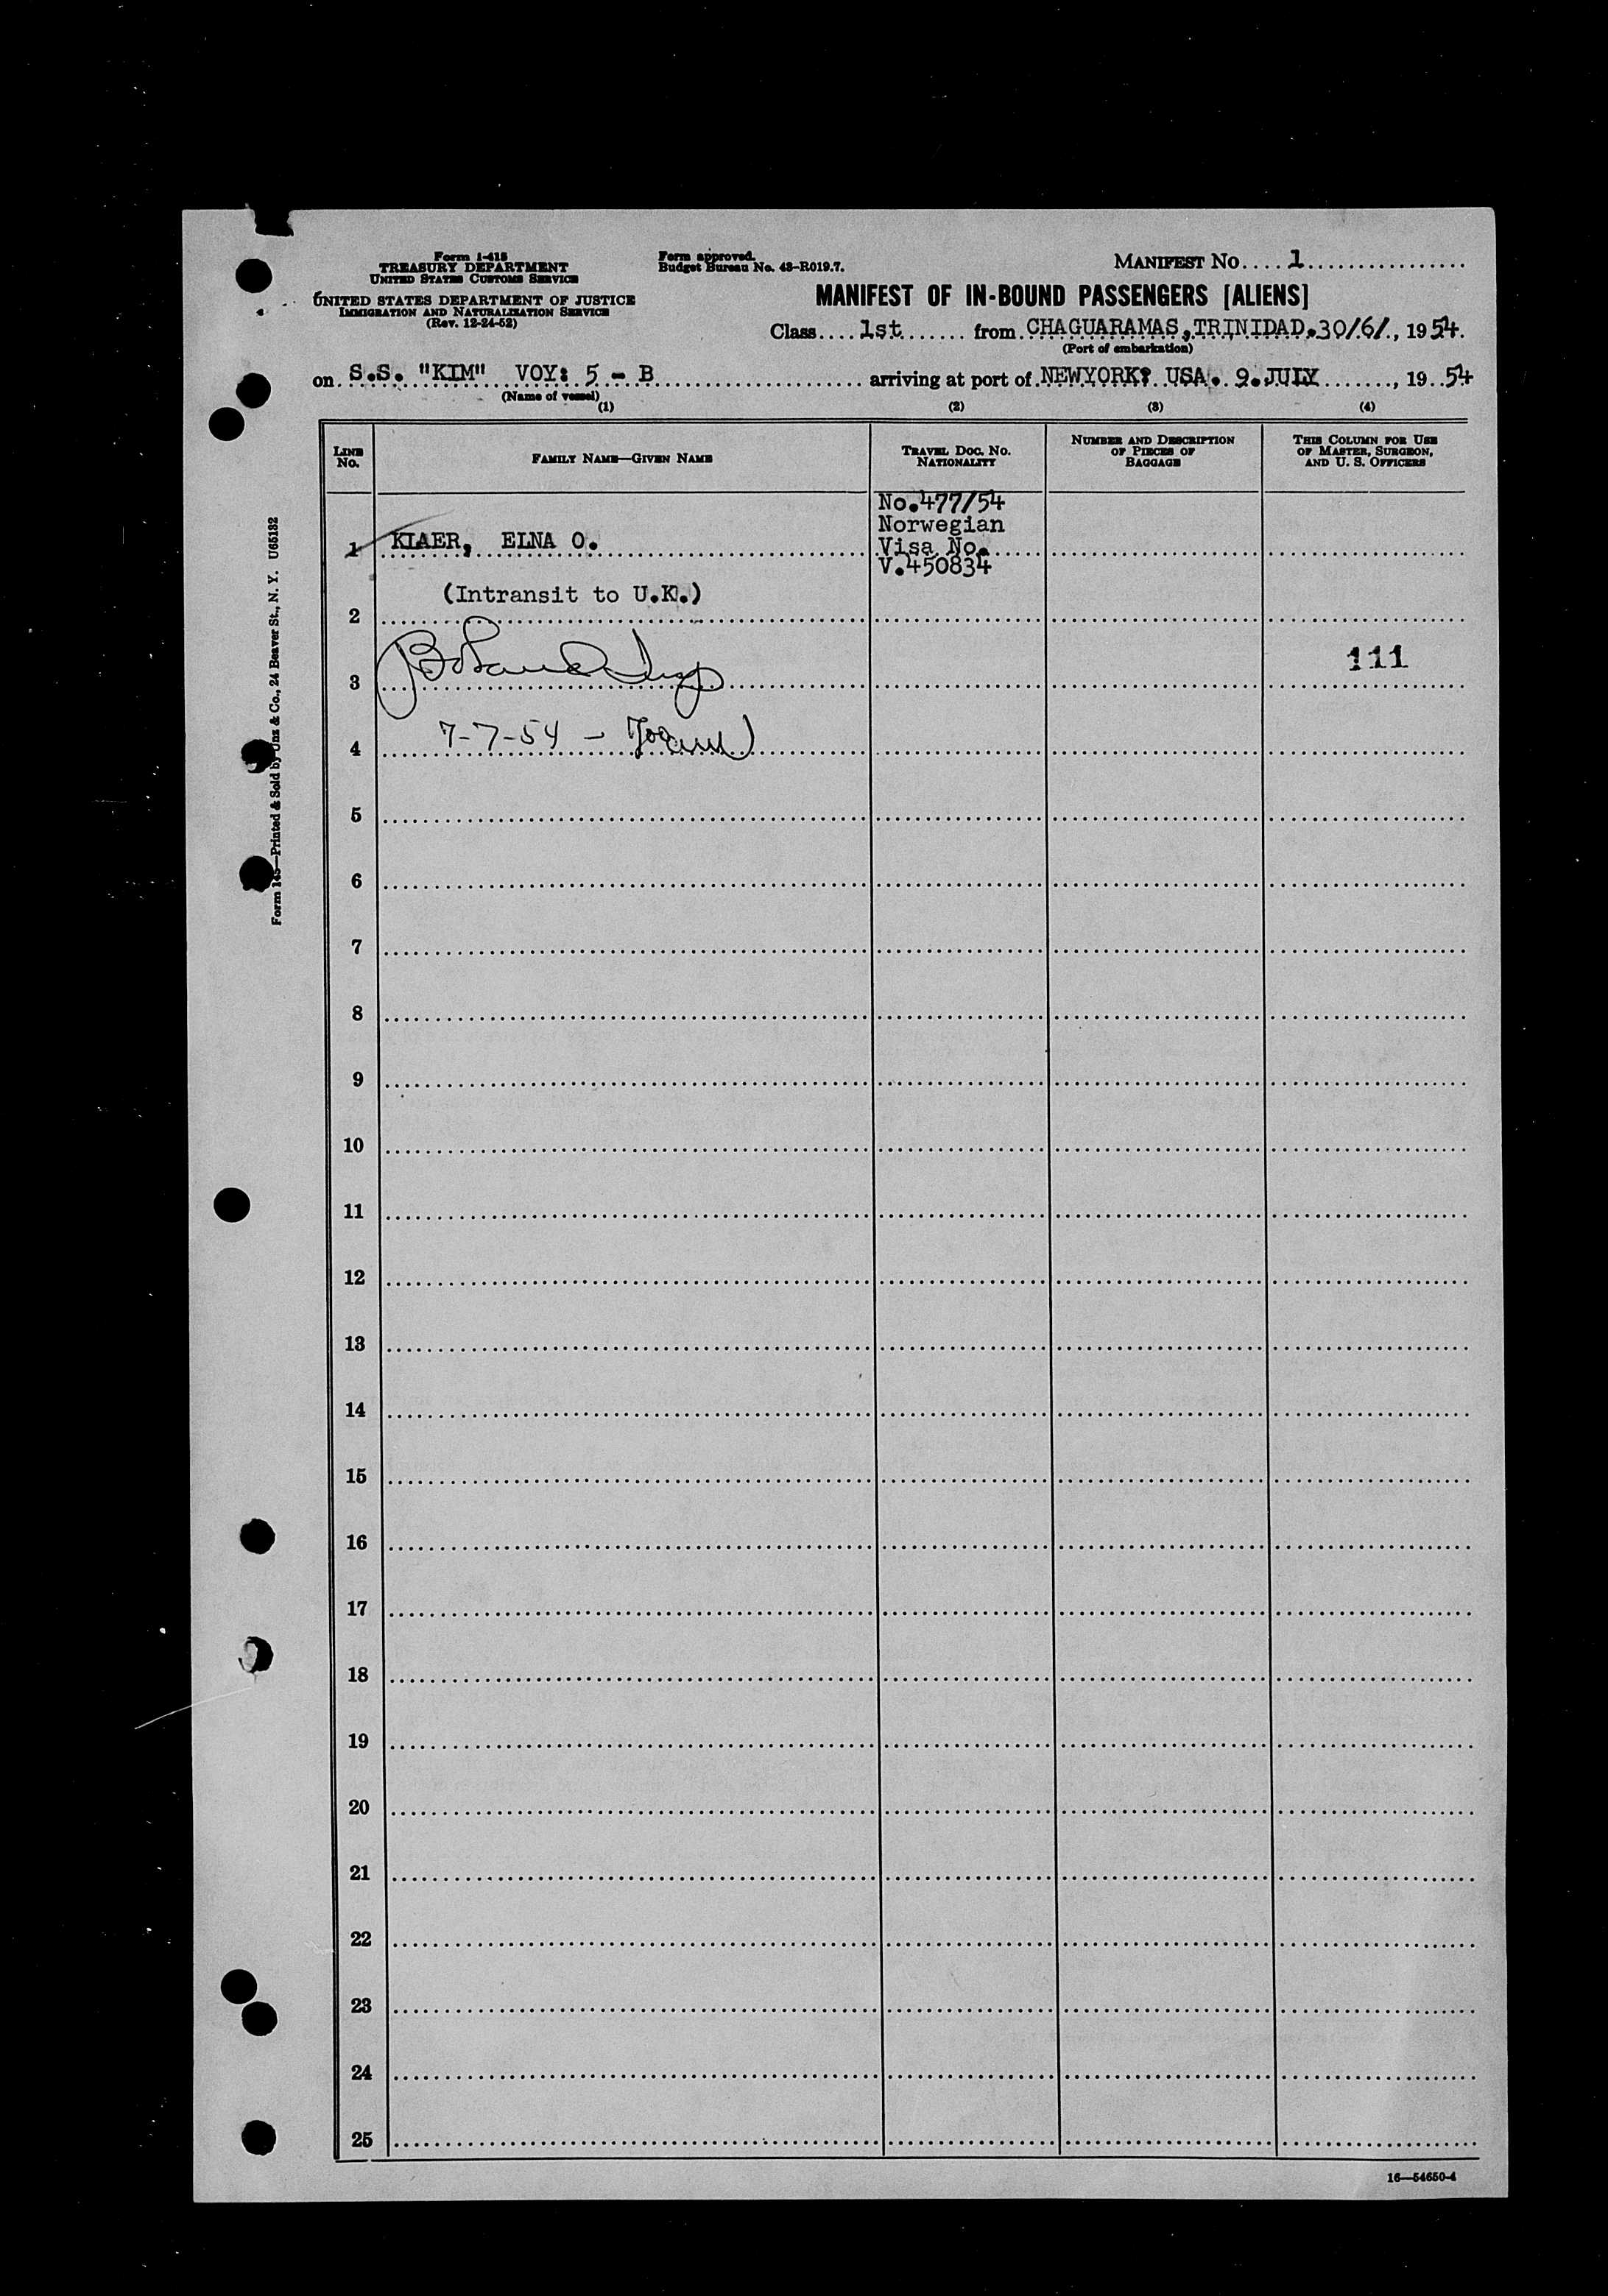 Form I-418
TREASURY DEPARTMENT
UNITED STATES CUSTOMS SERVICE
UNITED STATES DEPARTMENT OF JUSTICE
IMMIGRATION AND NATURALIZATION SERVICE
(Rev. 12-24-52)
Form approved.
Budget Bureau No. 43-R019.7.
MANIFEST NO. 1
MANIFEST OF IN-BOUND PASSENGERS [ALIENS]
Class 1st from CHAGUARAMAS, TRINIDAD. 30/6/, 1954.
(Port of embarkation)
on S.S. "KIM" VOY: 5 - B arriving at port of NEWYORK? USA. 9.JULY, 1954
(Name of vessel)
(1) (2) (3) (4)
LINE NO. FAMILY NAME—GIVEN NAME TRAVEL DOC. NO. NATIONALITY NUMBER AND DESCRIPTION OF PIECES OF BAGGAGE THIS COLUMN FOR USE OF MASTER, SURGEON, AND U. S. OFFICERS
No.477/54
Norwegian
1 KIAER, ELNA O. Visa No.
V.450834
(Intransit to U.K.)
2
111
3
7-7-54 -
4
5
6
7
8
9
10
11
12
13
14
15
16
17
18
19
20
21
22
23
24
25
16—54650-4
Form 145—Printed & Sold by Unz & Co., 24 Beaver St., N. Y. U65132